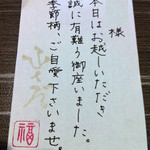 様
本日はお越しいただき
誠に有難う御座いました。
季節柄、ご自愛下さいませ。
福